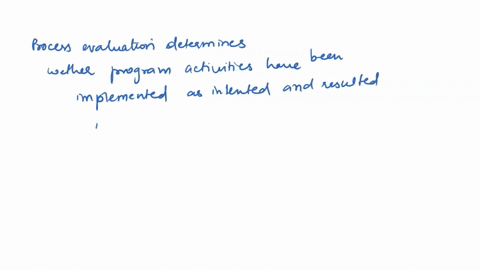 Process evaluation determines
wether program activities have been
implemented as intented and resulted